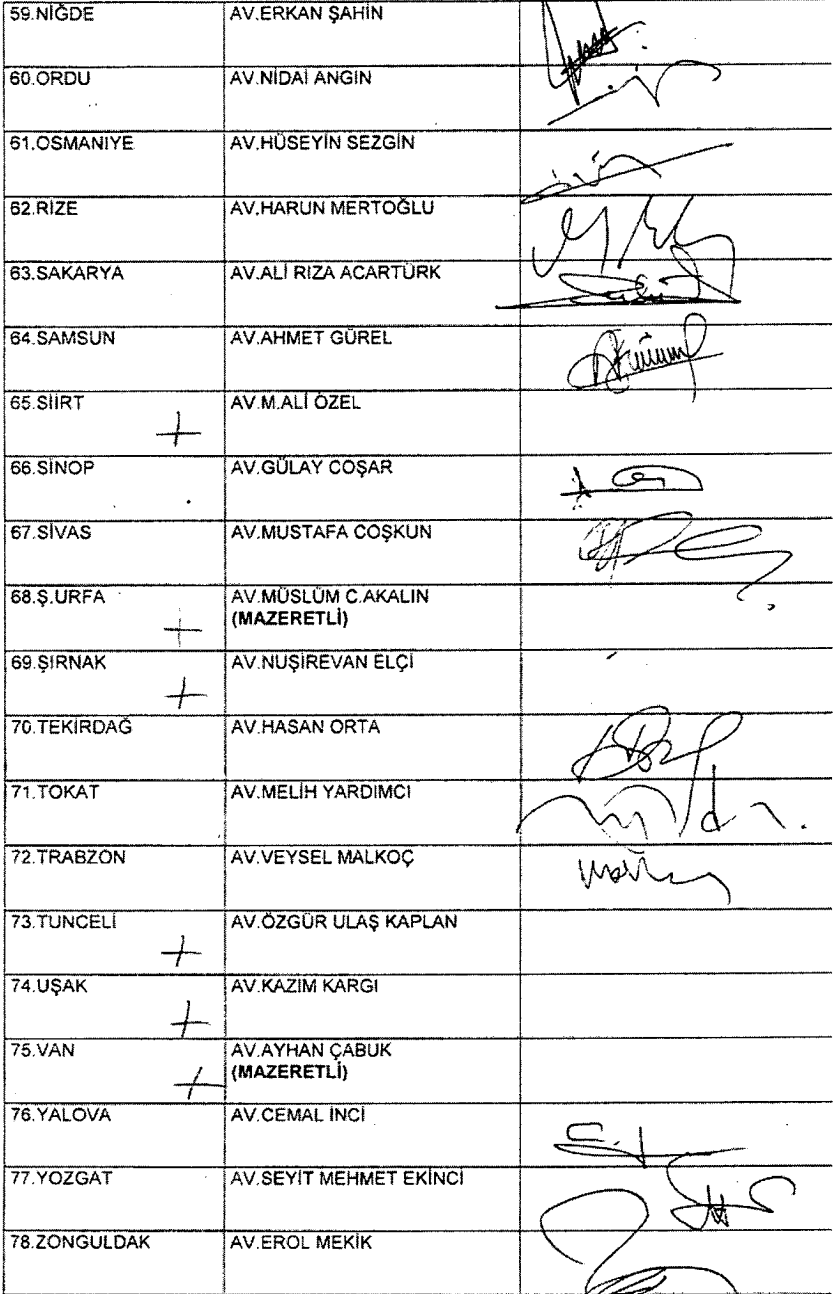 59.NİĞDE AV.ERKAN ŞAHİN
60.ORDU AV.NİDAİ ANGIN
61.OSMANİYE AV.HÜSEYİN SEZGİN
62.RİZE AV.HARUN MERTOĞLU
63.SAKARYA AV.ALİ RIZA ACARTÜRK
64.SAMSUN AV.AHMET GÜREL
65.SİİRT + AV.M.ALİ ÖZEL
66.SİNOP AV.GÜLAY COŞAR
67.SİVAS AV.MUSTAFA COŞKUN
68.Ş.URFA + AV.MÜSLÜM C.AKALIN
(MAZERETLİ)
69.ŞIRNAK + AV.NUŞİREVAN ELÇİ
70.TEKİRDAĞ AV.HASAN ORTA
71.TOKAT AV.MELİH YARDIMCI
72.TRABZON AV.VEYSEL MALKOÇ
73.TUNCELİ + AV.ÖZGÜR ULAŞ KAPLAN
74.UŞAK + AV.KAZIM KARGI
75.VAN + AV.AYHAN ÇABUK
(MAZERETLİ)
76.YALOVA AV.CEMAL İNCİ
77.YOZGAT AV.SEYİT MEHMET EKİNCİ
78.ZONGULDAK AV.EROL MEKİK